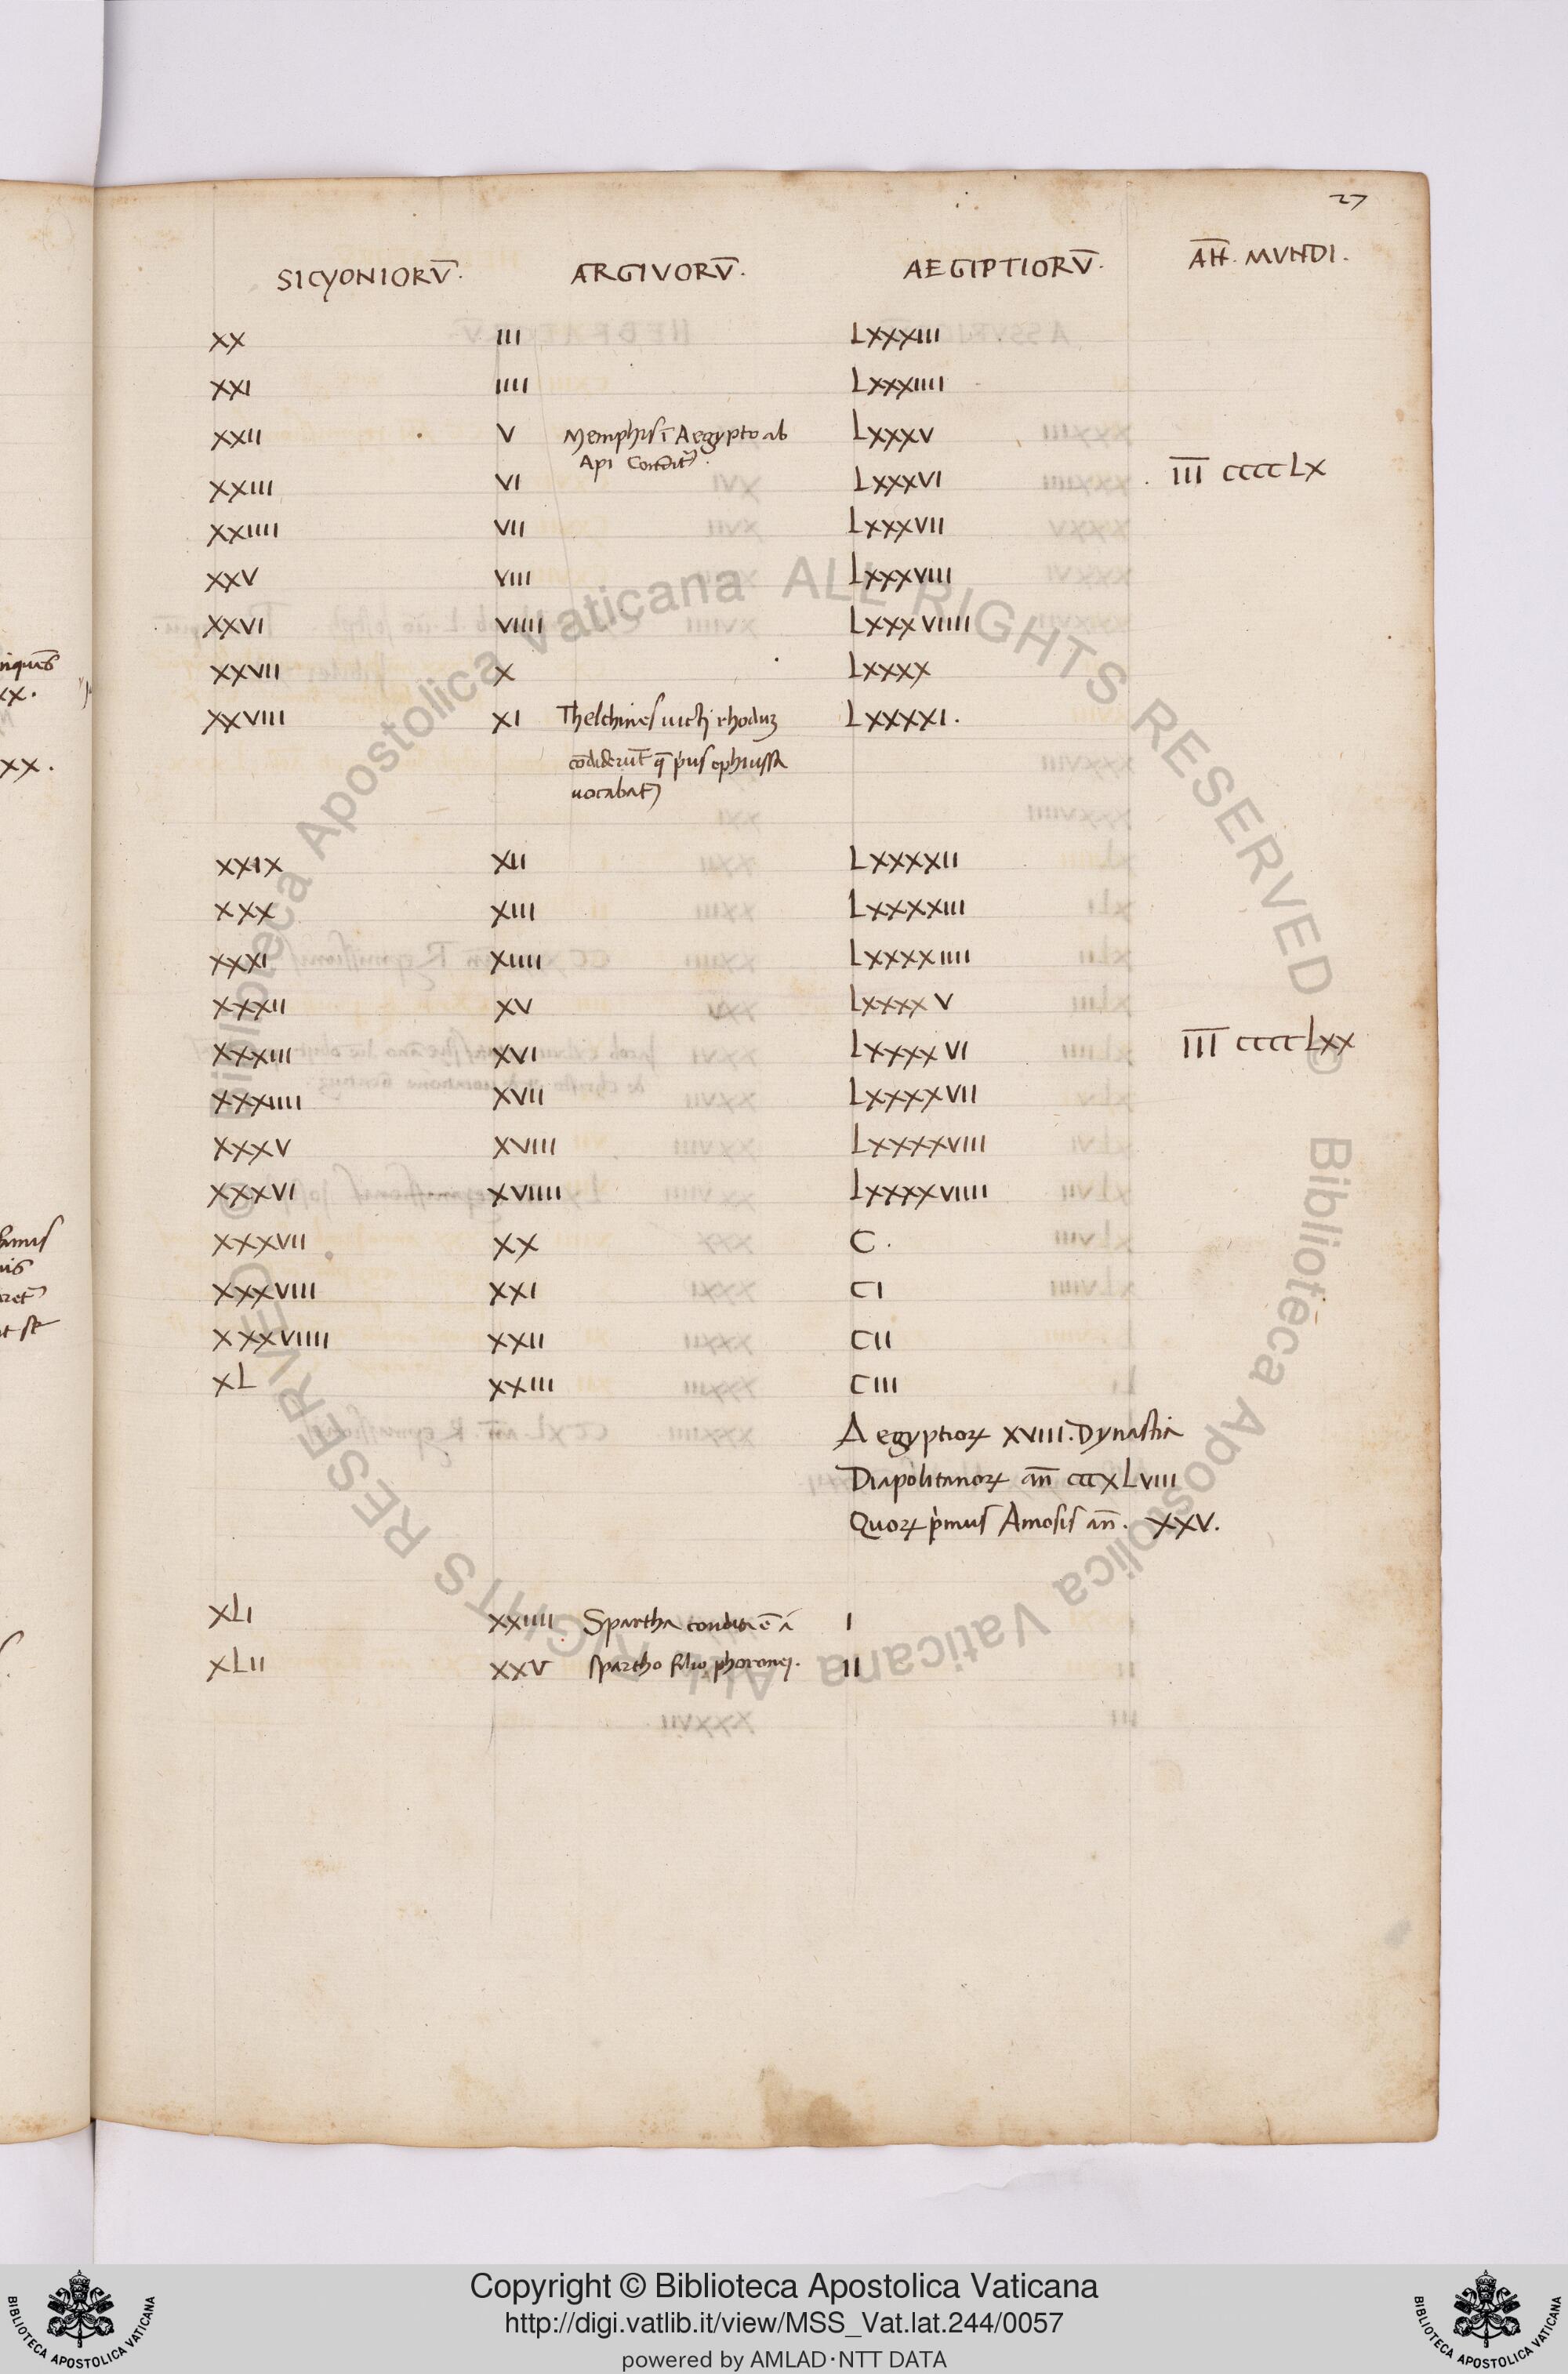 27
SICYONIORV̅. ARGIVORV̅. AEGIPTIORV̅. AN̅. MVNDI.
XX III LXXXIII
XXI IIII LXXXIIII
XXII V Memphis ī Aegypto ab LXXXV
Api Condit᷑.
XXIII VI LXXXVI I̅I̅I̅ CCCCLX
XXIIII VII LXXXVII
XXV VIII LXXXVIII
XXVI VIIII LXXXVIIII
XXVII X LXXXX
XXVIII XI Thelchines uicti rhoduꝫ LXXXXI.
cōdiderūt q̄ p̍us ophiussa
uocabat᷑
XXIX XII LXXXXII
XXX XIII LXXXXIII
XXXI XIIII LXXXXIIII
XXXII XV LXXXXV
XXXIII XVI LXXXXVI I̅I̅I̅ CCCCLXX
XXXIIII XVII LXXXXVII
XXXV XVIII LXXXXVIII
XXXVI XVIIII LXXXXVIIII
XXXVII XX C.
XXXVIII XXI CI
XXXVIIII XXII CII
XL XXIII CIII
Aegyptioꝝ XVIII. Dynastia
Diapolitanoꝝ an̅ CCCXLVIII
Quoꝝ p̍mus Amosis an̅. XXV.
XLI XXIIII Spartha condita ē á I
XLII XXV spartho filio phoronei. II
Copyright © Biblioteca Apostolica Vaticana
http://digi.vatlib.it/view/MSS_Vat.lat.244/0057
powered by AMLAD·NTT DATA
BIBLIOTECA APOSTOLICA VATICANA
BIBLIOTECA APOSTOLICA VATICANA
© Biblioteca Apostolica Vaticana ALL RIGHTS RESERVED © Biblioteca Apostolica Vaticana ALL RIGHTS RESERVED